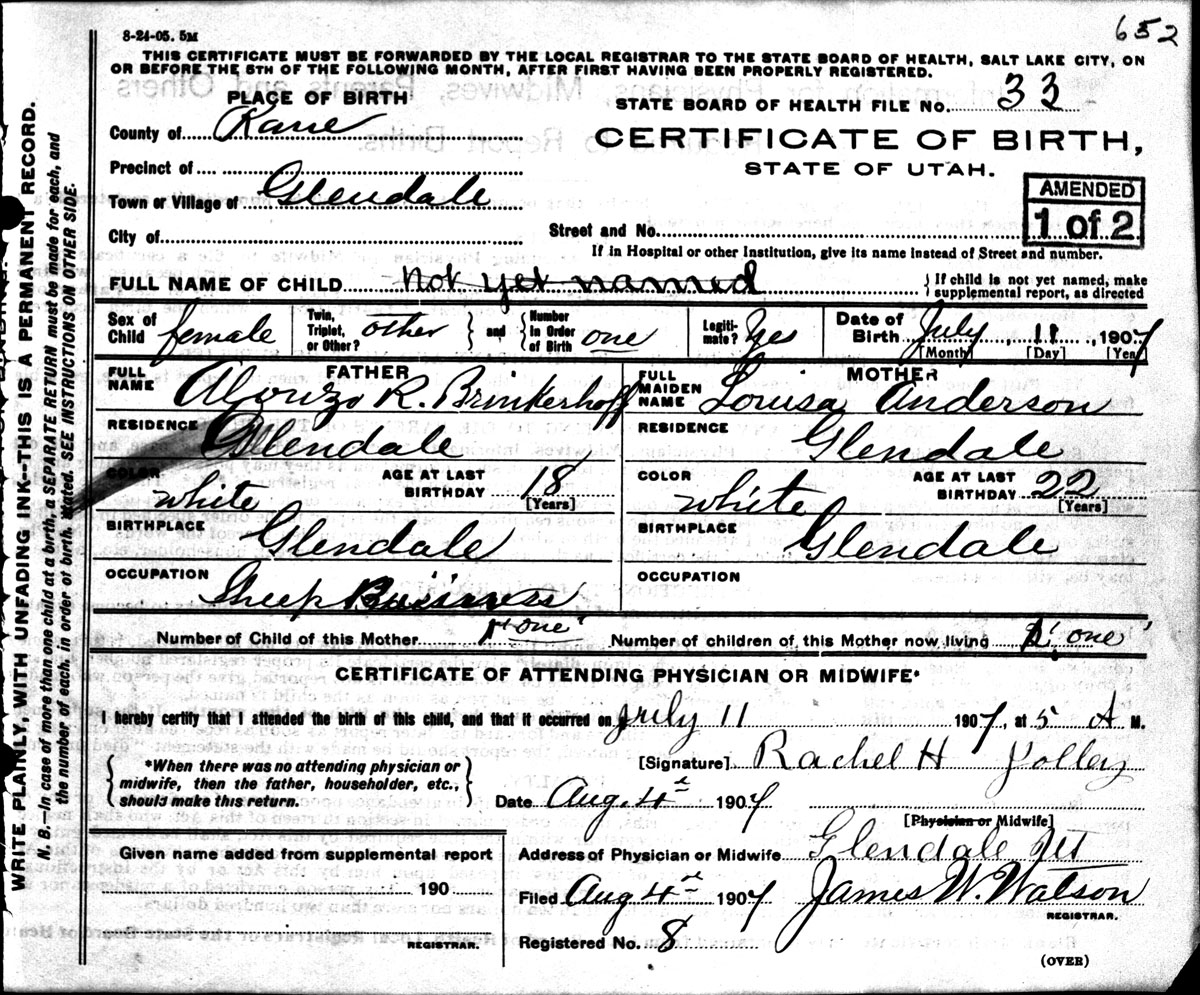 652
8-24-05. 5M
THIS CERTIFICATE MUST BE FORWARDED BY THE LOCAL REGISTRAR TO THE STATE BOARD OF HEALTH, SALT LAKE CITY, ON
OR BEFORE THE 5TH OF THE FOLLOWING MONTH, AFTER FIRST HAVING BEEN PROPERLY REGISTERED.
PLACE OF BIRTH
STATE BOARD OF HEALTH FILE No. 33
County of Kane
CERTIFICATE OF BIRTH,
Precinct of
STATE OF UTAH.
AMENDED
1 of 2
Town or Village of Glendale
City of
Street and No.
If in Hospital or other Institution, give its name instead of Street and number.
FULL NAME OF CHILD Not yet named
If child is not yet named, make supplemental report, as directed
Sex of Child female Twin, Triplet, or Other? other and Number in Order of Birth one Legitimate? Yes Date of Birth July 11 1907
[Month] [Day] [Year]
FATHER
FULL NAME Alonzo R. Brinkerhoff
MOTHER
FULL MAIDEN NAME Louisa Anderson
RESIDENCE Glendale
RESIDENCE Glendale
COLOR white AGE AT LAST BIRTHDAY 18 [Years]
COLOR white AGE AT LAST BIRTHDAY 22 [Years]
BIRTHPLACE Glendale
BIRTHPLACE Glendale
OCCUPATION Sheep Business
OCCUPATION
Number of Child of this Mother 1 "one" Number of children of this Mother now living "one"
CERTIFICATE OF ATTENDING PHYSICIAN OR MIDWIFE*
I hereby certify that I attended the birth of this child, and that it occurred on July 11 1907, at 5 A M.
*When there was no attending physician or midwife, then the father, householder, etc., should make this return.
[Signature] Rachel H Jolley
Date Aug. 4th 1907
[Physician or Midwife]
Given name added from supplemental report
190
REGISTRAR.
Address of Physician or Midwife Glendale Ut
Filed Aug 4th 1907 James W. Watson
REGISTRAR.
Registered No. 8
(OVER)
WRITE PLAINLY, WITH UNFADING INK--THIS IS A PERMANENT RECORD.
N. B.—In case of more than one child at a birth, a SEPARATE RETURN must be made for each, and
the number of each, in order of birth, stated. SEE INSTRUCTIONS ON OTHER SIDE.